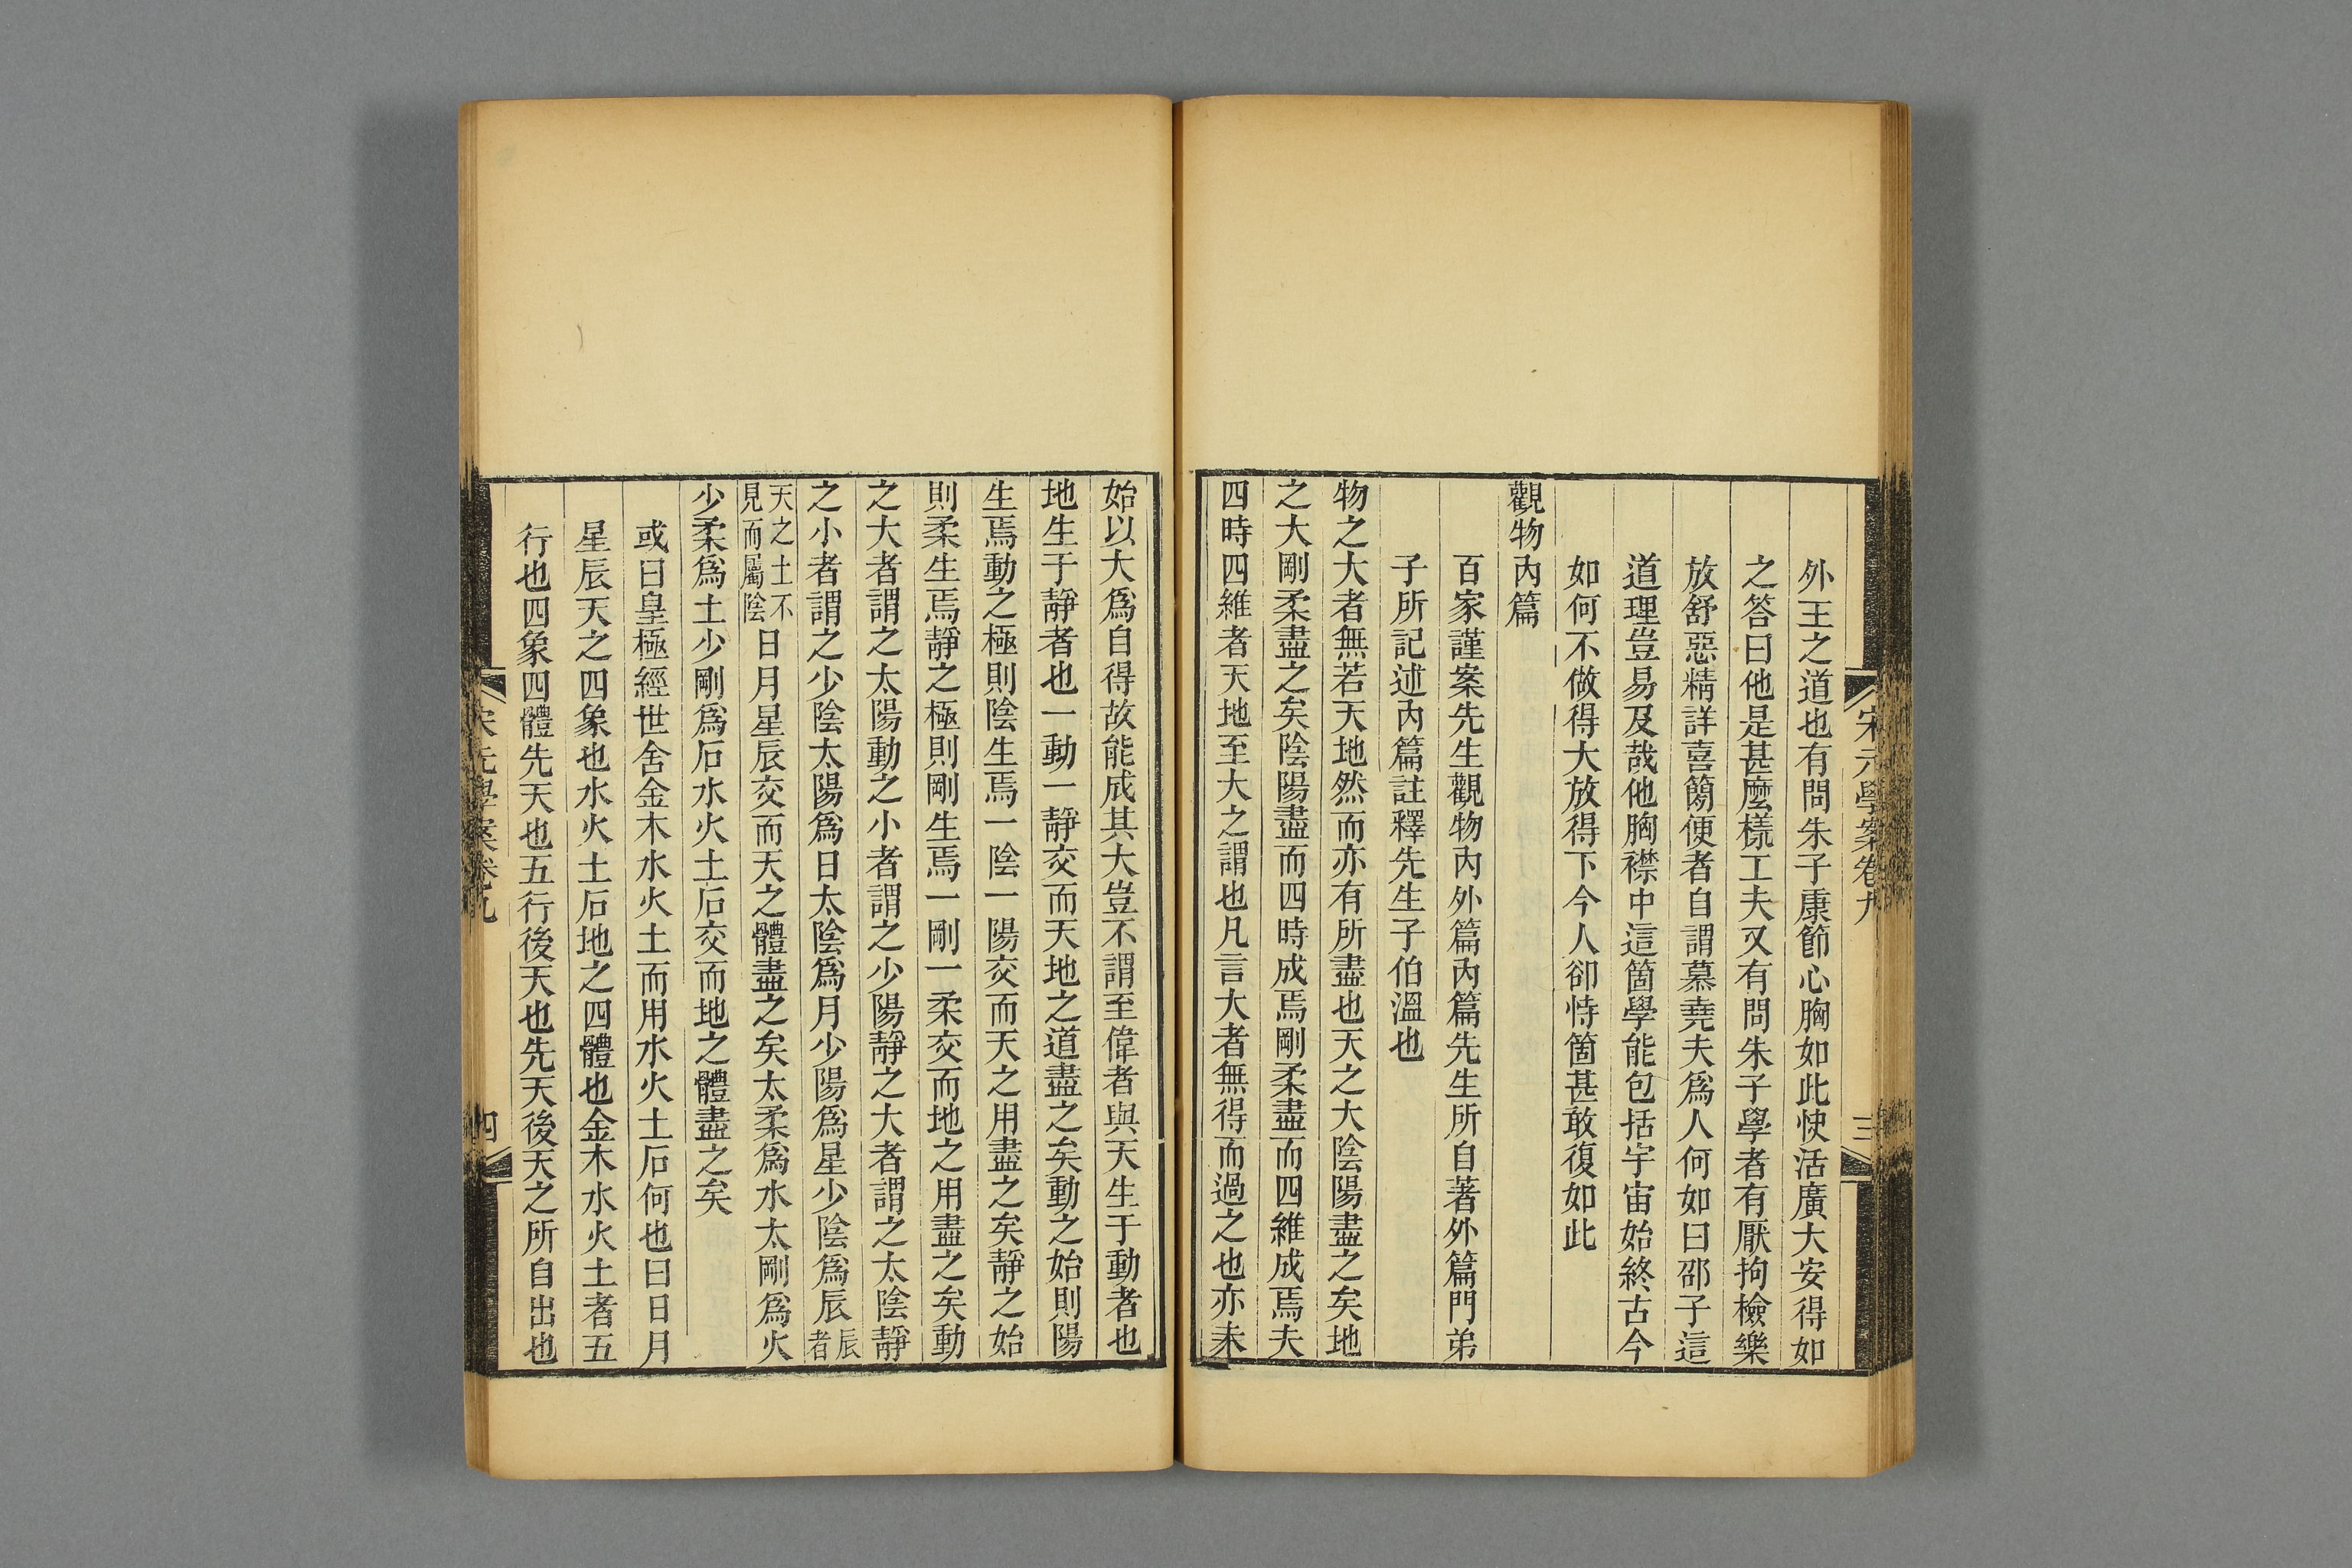 宋元學案卷九
三
外王之道也有問朱子康節心胸如此快活廣大安得如
之答曰他是甚麽樣工夫又有問朱子學者有厭拘檢樂
放舒惡精詳喜簡便者自謂慕堯夫爲人何如曰邵子這
道理豈易及哉他胸襟中這箇學能包括宇宙始終古今
如何不做得大放得下今人卻恃箇甚敢復如此
觀物內篇
百家謹案先生觀物內外篇內篇先生所自著外篇門弟
子所記述內篇註釋先生子伯溫也
物之大者無若天地然而亦有所盡也天之大陰陽盡之矣地
之大剛柔盡之矣陰陽盡而四時成焉剛柔盡而四維成焉夫
四時四維者天地至大之謂也凡言大者無得而過之也亦未
始以大爲自得故能成其大豈不謂至偉者與天生于動者也
地生于靜者也一動一靜交而天地之道盡之矣動之始則陽
生焉動之極則陰生焉一陰一陽交而天之用盡之矣靜之始
則柔生焉靜之極則剛生焉一剛一柔交而地之用盡之矣動
之大者謂之太陽動之小者謂之少陽靜之大者謂之太陰靜
之小者謂之少陰太陽爲日太陰爲月少陽爲星少陰爲辰辰者
天之土不見而屬陰日月星辰交而天之體盡之矣太柔爲水太剛爲火
少柔爲土少剛爲石水火土石交而地之體盡之矣
或曰皇極經世舍金木水火土而用水火土石何也曰日月
星辰天之四象也水火土石地之四體也金木水火土者五
行也四象四體先天也五行後天也先天後天之所自出也
宋元學案卷九
四